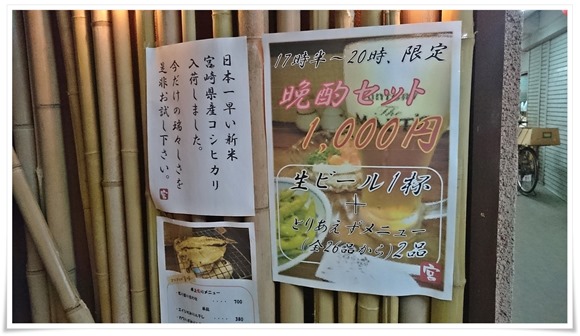 日本一早い新米
宮崎県産コシヒカリ
入荷しました。
今だけの瑞々しさを
是非お試し下さい。
宮
17時半～20時、限定
晩酌セット
1,000円
生ビール1杯
＋
とりあえずメニュー
(全26品から)2品
宮
メニュー
700
380